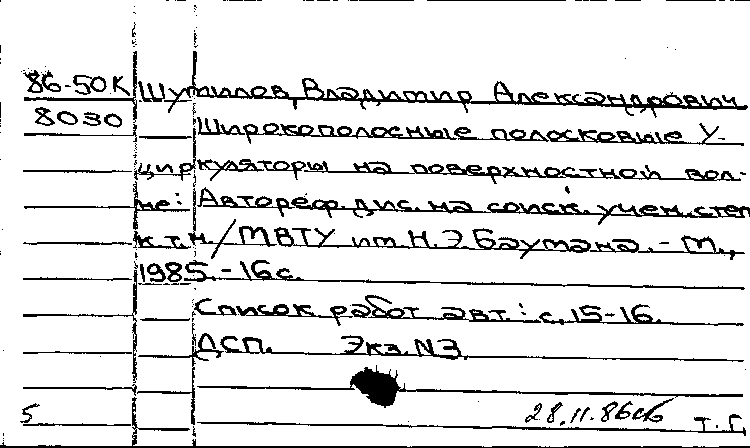 86-50К Шутилов, Владимир Александрович
8030 Широкополосные полосковые У-
циркуляторы на поверхностной вол-
не: Автореф. дис. на соиск. учен. степ
к.т.н/МВТУ им Н.Э Баумана. - М.,
1985. - 16 с.
Список работ авт.: с. 15-16.
ДСП. Экз. N3.
5 28.11.86 т. Г.